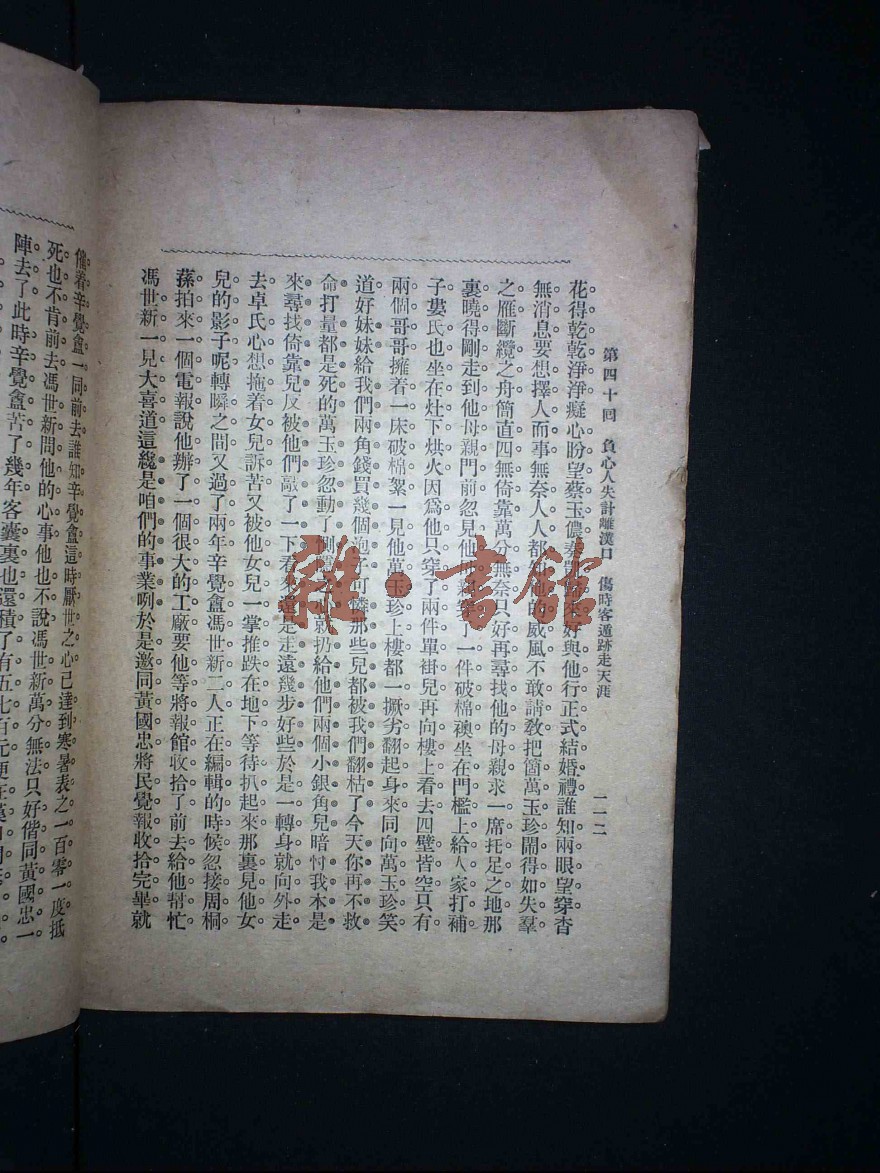 第四十回 負心人失計離漢口 傷時客遁跡走天涯 一一二
花得乾乾淨淨癡心盼望蔡玉儂奏凱歸來好與他行正式結婚禮誰知兩眼望穿杳
無消息要想擇人而事無奈人人都知他的威風不敢請敎把箇萬玉珍鬧得如失羣
之雁斷纜之舟簡直四無倚靠萬分無奈只好再尋找他的母親求一席托足之地那
裏曉得剛走到他母親門前忽見他穿了一件破棉襖坐在門檻上給人家打補
子婁氏也坐在灶下烘火因爲他只穿了兩件單褂兒再向樓上看去四壁皆空只有
兩個哥哥擁着一床破棉絮一見他萬玉珍上樓都一撅劣翻起身來同向萬玉珍笑
道好妹妹給我們兩角錢買幾個泡子可憐那些兒都被我們翻枯了今天你再不救
命打量都是死的萬玉珍忽動了惻心就扔給他們兩個小銀角兒暗忖我本是
來尋找倚靠兒反被他們敲了一下看來還是走遠幾步好些於是一轉身就向外走
去卓氏心想拖着女兒訴苦又被他女兒一掌推跌在地下等待扒起來那裏兒他女
兒的影子呢轉瞬之間又過了兩年辛覺盦馮世新二人正在編輯的時候忽接周桐
蓀拍來一個電報說他辦了一個很大的工廠要他等將報館收拾了前去給他幫忙
馮世新一見大喜道這纔是咱們的事業咧於是邀同黃國忠將民覺報收拾完畢就
他着辛覺盦一同前去誰知辛覺盦這時厭世之心已達到寒暑表之一百零一度抵
死也不肯前去馮世新問他的心事他也不說馮世新萬分無法只好偕同黃國忠一
陣去了此時辛覺盦苦了幾年客囊裏也還積了有五七百元便在
雜·書館